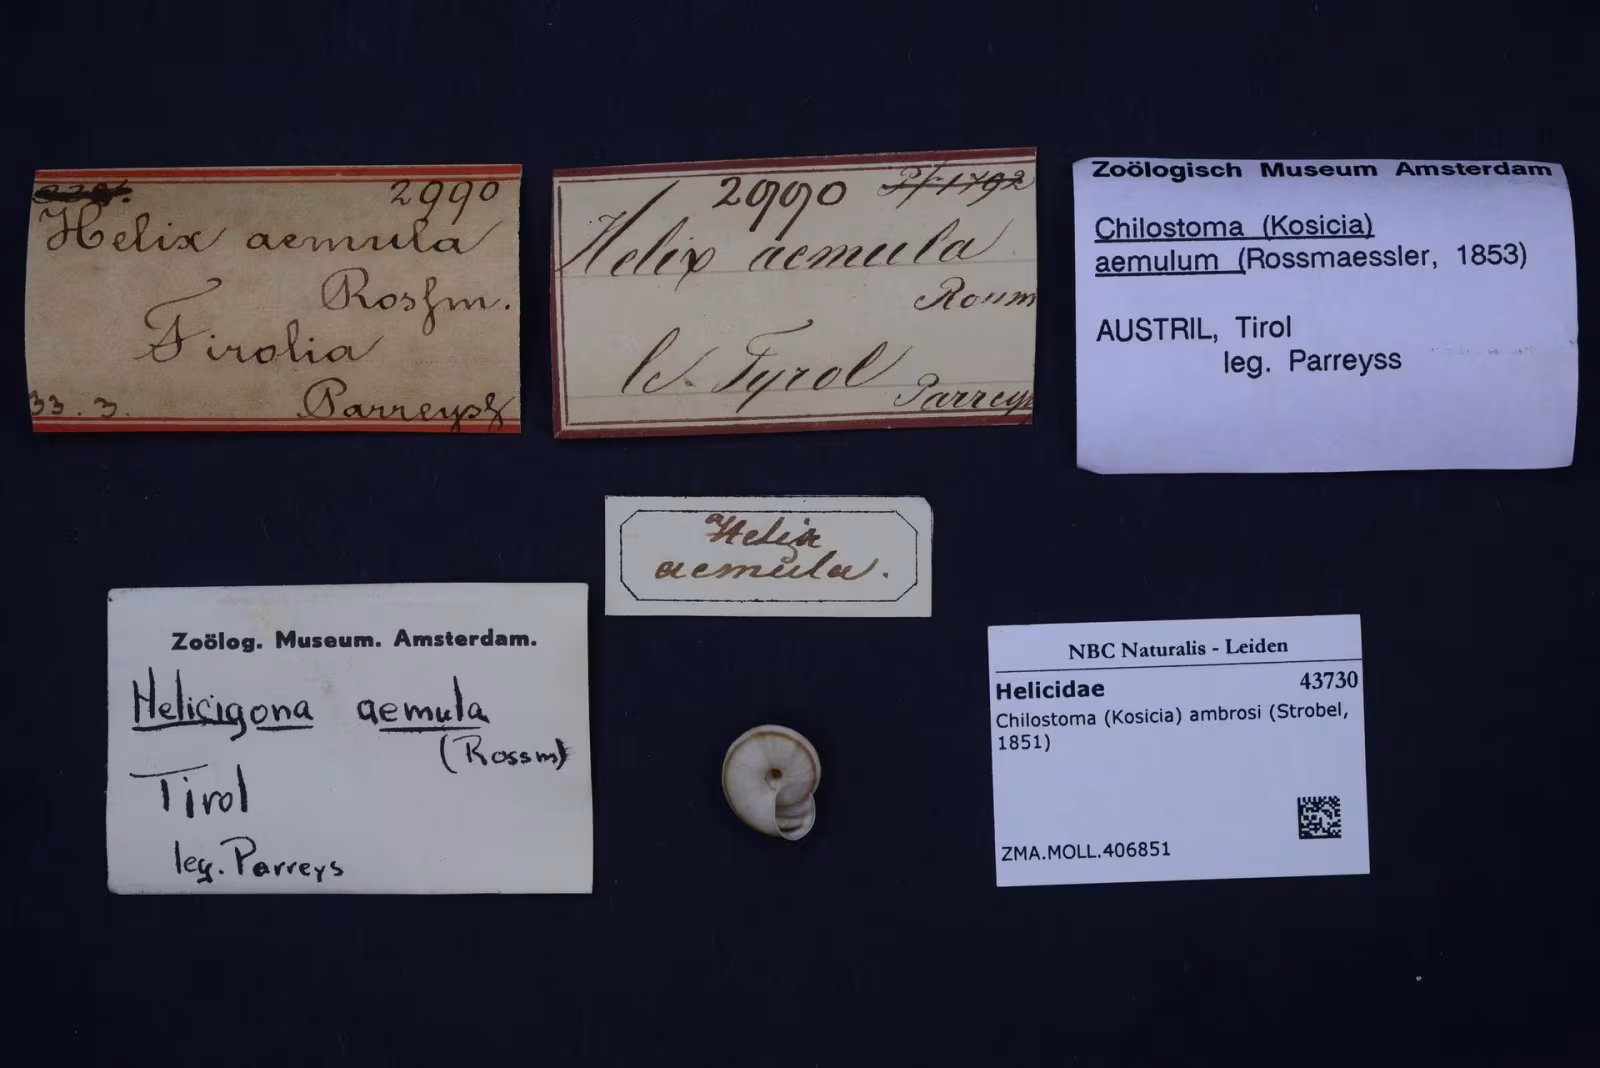 2990
Helix aemula
Rossm.
Tirolia
33.3.
Parreyss
2990 Pf 1792
Helix aemula
Rossm
Tyrol
Parreys
Zoölogisch Museum Amsterdam
Chilostoma (Kosicia)
aemulum (Rossmaessler, 1853)
AUSTRIL, Tirol
leg. Parreyss
Helix
aemula.
Zoölog. Museum. Amsterdam.
Helicigona aemula
(Rossm)
Tirol
leg. Parreys
NBC Naturalis - Leiden
Helicidae 43730
Chilostoma (Kosicia) ambrosi (Strobel,
1851)
ZMA.MOLL.406851